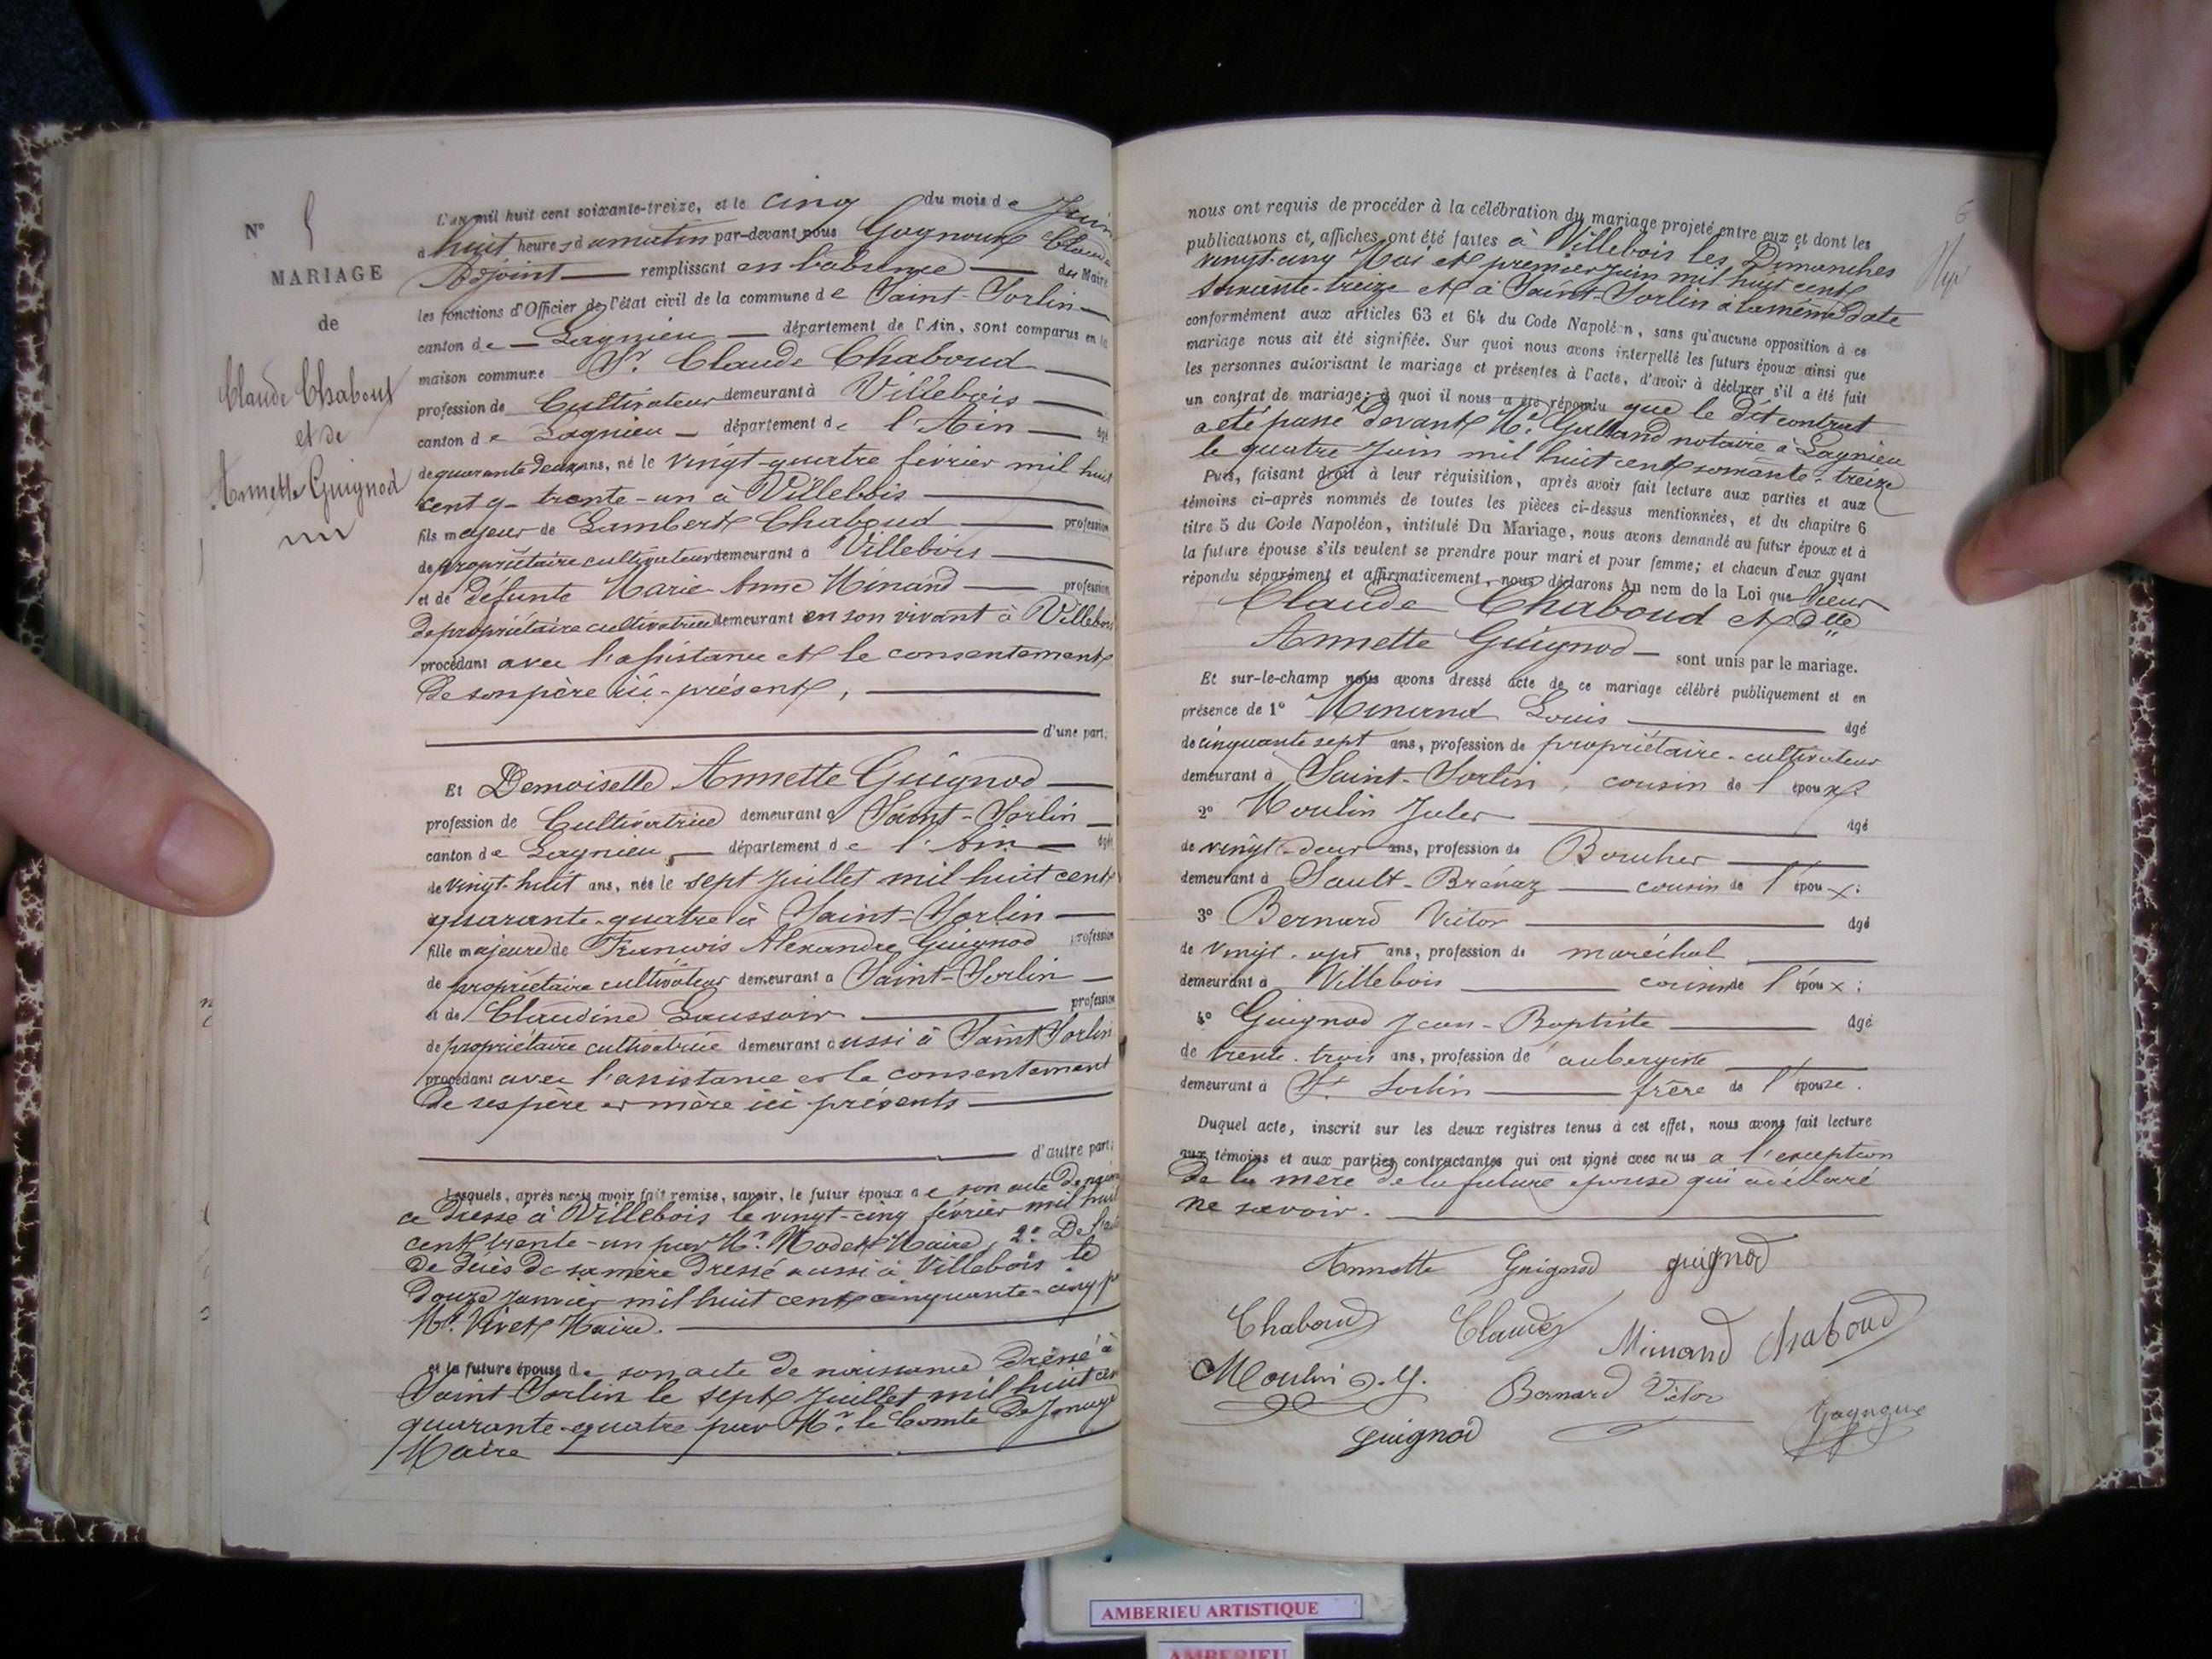 N° 5
MARIAGE
de
Claude Chaboud
et de
Annette Guignod
L'an mil huit cent soixante-treize, et le cinq du mois de Juin
à huit heures du matin par-devant nous Gagnoux Claude
Adjoint remplissant en l'absence du Maire
les fonctions d'Officier de l'état civil de la commune de Saint-Sorlin
canton de Lagnieu département de l'Ain, sont comparus en la
maison commune Sr. Claude Chaboud
profession de Cultivateur demeurant à Villebois
canton de Lagnieu département de l'Ain âgé
de quarante deux ans, né le vingt-quatre février mil huit
cent trente-un à Villebois
fils majeur de Lambert Chaboud profession
de propriétaire cultivateur demeurant à Villebois
et de défunte Marie Anne Minand profession
de propriétaire cultivatrice demeurant en son vivant à Villebois
procédant avec l'assistance et le consentement
de son père ici-présent,
d'une part;
Et Demoiselle Annette Guignod
profession de Cultivatrice demeurant à Saint-Sorlin
canton de Lagnieu, département de l'Ain âgée
de vingt-huit ans, née le sept Juillet mil huit cent
quarante-quatre à Saint-Sorlin
fille majeure de François Alexandre Guignod profession
de propriétaire cultivateur demeurant à Saint-Sorlin
et de Claudine Laussoir profession
de propriétaire cultivatrice demeurant aussi à Saint Sorlin
procédant avec l'assistance et le consentement
de ses père et mère ici présents
d'autre part;
Lesquels, après nous avoir fait remise, savoir, le futur époux de son acte de naissan
ce dressé à Villebois le vingt-cinq février mil huit
cent trente-un par Mr. Modet Maire, 2° De l'acte
de décès de sa mère dressé aussi à Villebois le
douze Janvier mil huit cent cinquante-cinq par
Mr. Vivet Maire.
et la future épouse de son acte de naissance dressé à
Saint Sorlin le sept Juillet mil huit cent
quarante-quatre par Mr. le Comte De Jonage
Maire
nous ont requis de procéder à la célébration du mariage projeté entre eux et dont les
publications et affiches ont été faites à Villebois les Dimanches
vingt-cinq Mai et premier Juin mil huit cent
soixante-treize et à Saint-Sorlin à la même date
conformément aux articles 63 et 64 du Code Napoléon, sans qu'aucune opposition à ce
mariage nous ait été signifiée. Sur quoi nous avons interpellé les futurs époux ainsi que
les personnes autorisant le mariage et présentes à l'acte, d'avoir à déclarer s'il a été fait
un contrat de mariage; à quoi il nous a été répondu que le dit contrat
a été passé devant Me. Galland notaire à Lagnieu
le quatre Juin mil huit cent soixante-treize
Puis, faisant droit à leur réquisition, après avoir fait lecture aux parties et aux
témoins ci-après nommés de toutes les pièces ci-dessus mentionnées, et du chapitre 6
titre 5 du Code Napoléon, intitulé Du Mariage, nous avons demandé au futur époux et à
la future épouse s'ils veulent se prendre pour mari et pour femme; et chacun d'eux ayant
répondu séparément et affirmativement, nous déclarons Au nom de la Loi que Sieur
Claude Chaboud et Dlle
Annette Guignod sont unis par le mariage.
Et sur-le-champ nous avons dressé acte de ce mariage célébré publiquement et en
présence de 1° Minand Louis âgé
de cinquante sept ans, profession de propriétaire-cultivateur
demeurant à Saint-Sorlin, cousin de l'époux;
2° Moulin Jules âgé
de vingt-deux ans, profession de Boucher
demeurant à Sault-Brénaz cousin de l'époux;
3° Bernard Victor âgé
de vingt-sept ans, profession de maréchal
demeurant à Villebois cousin de l'époux;
4° Guignod Jean-Baptiste âgé
de trente-trois ans, profession de aubergiste
demeurant à St. Sorlin frère de l'épouse.
Duquel acte, inscrit sur les deux registres tenus à cet effet, nous avons fait lecture
aux témoins et aux parties contractantes qui ont signé avec nous à l'exception
de la mère de la future épouse qui a déclaré
ne savoir.
Annette Guignod guignod
Chaboud Claude Minand Chaboud
Moulin J. Bernard Victor
guignod
AMBERIEU ARTISTIQUE
AMBERIEU